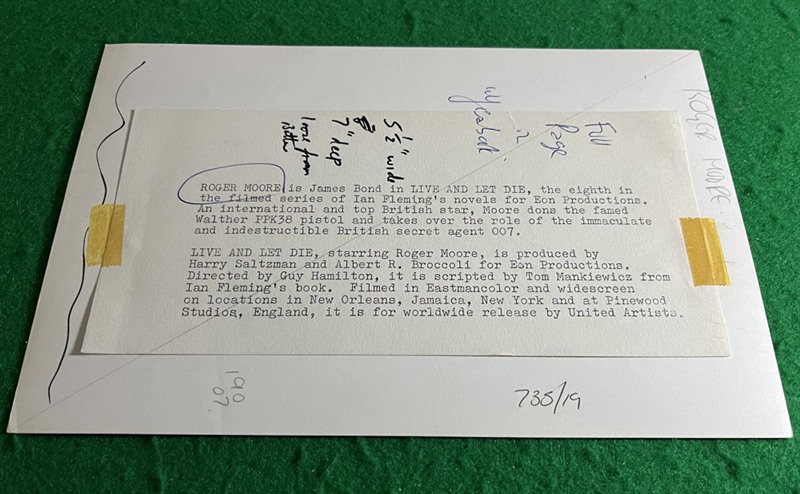 Full
Page
in
5½" wide
7" deep
1 one from
ROGER MOORE
ROGER MOORE is James Bond in LIVE AND LET DIE, the eighth in
the filmed series of Ian Fleming's novels for Eon Productions.
An international and top British star, Moore dons the famed
Walther PPK38 pistol and takes over the role of the immaculate
and indestructible British secret agent 007.
LIVE AND LET DIE, starring Roger Moore, is produced by
Harry Saltzman and Albert R. Broccoli for Eon Productions.
Directed by Guy Hamilton, it is scripted by Tom Mankiewicz from
Ian Fleming's book. Filmed in Eastmancolor and widescreen
on locations in New Orleans, Jamaica, New York and at Pinewood
Studios, England, it is for worldwide release by United Artists.
190
07
735/19